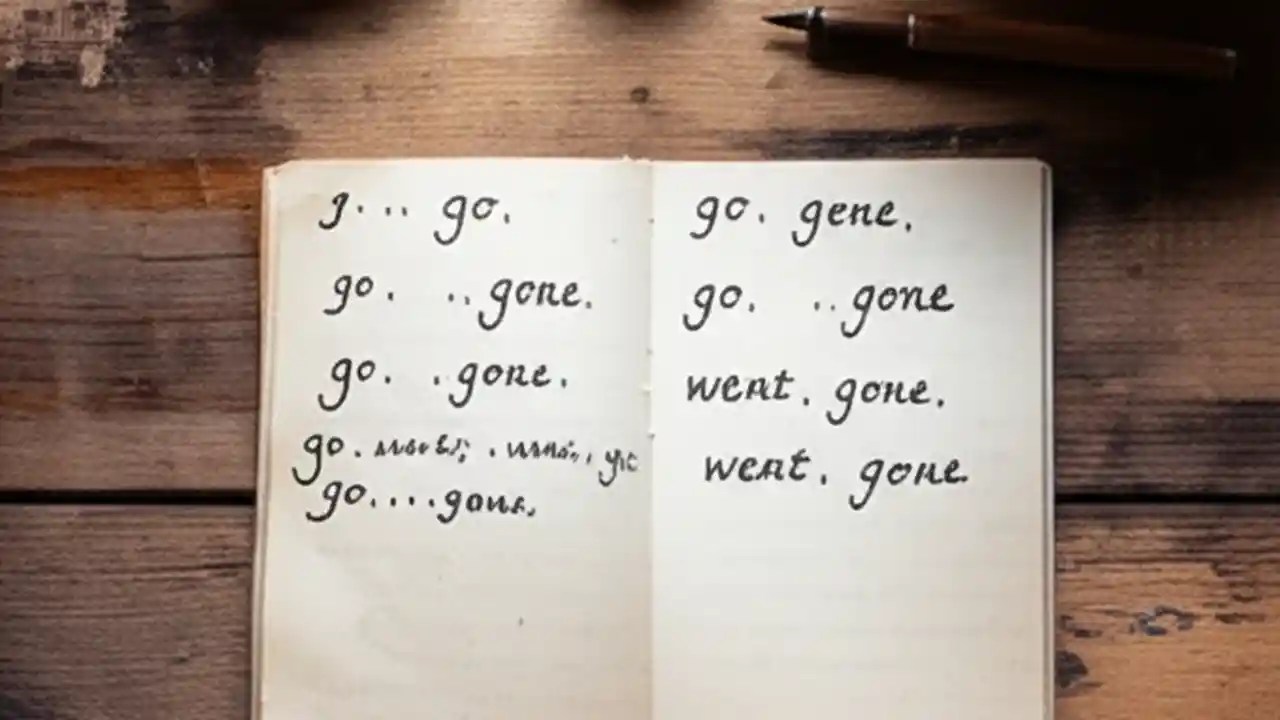 g... go.
go. ..gone.
go. .gone.
go.
go....gone.
go. gene.
go. ..gone
went. gone.
went. gone.